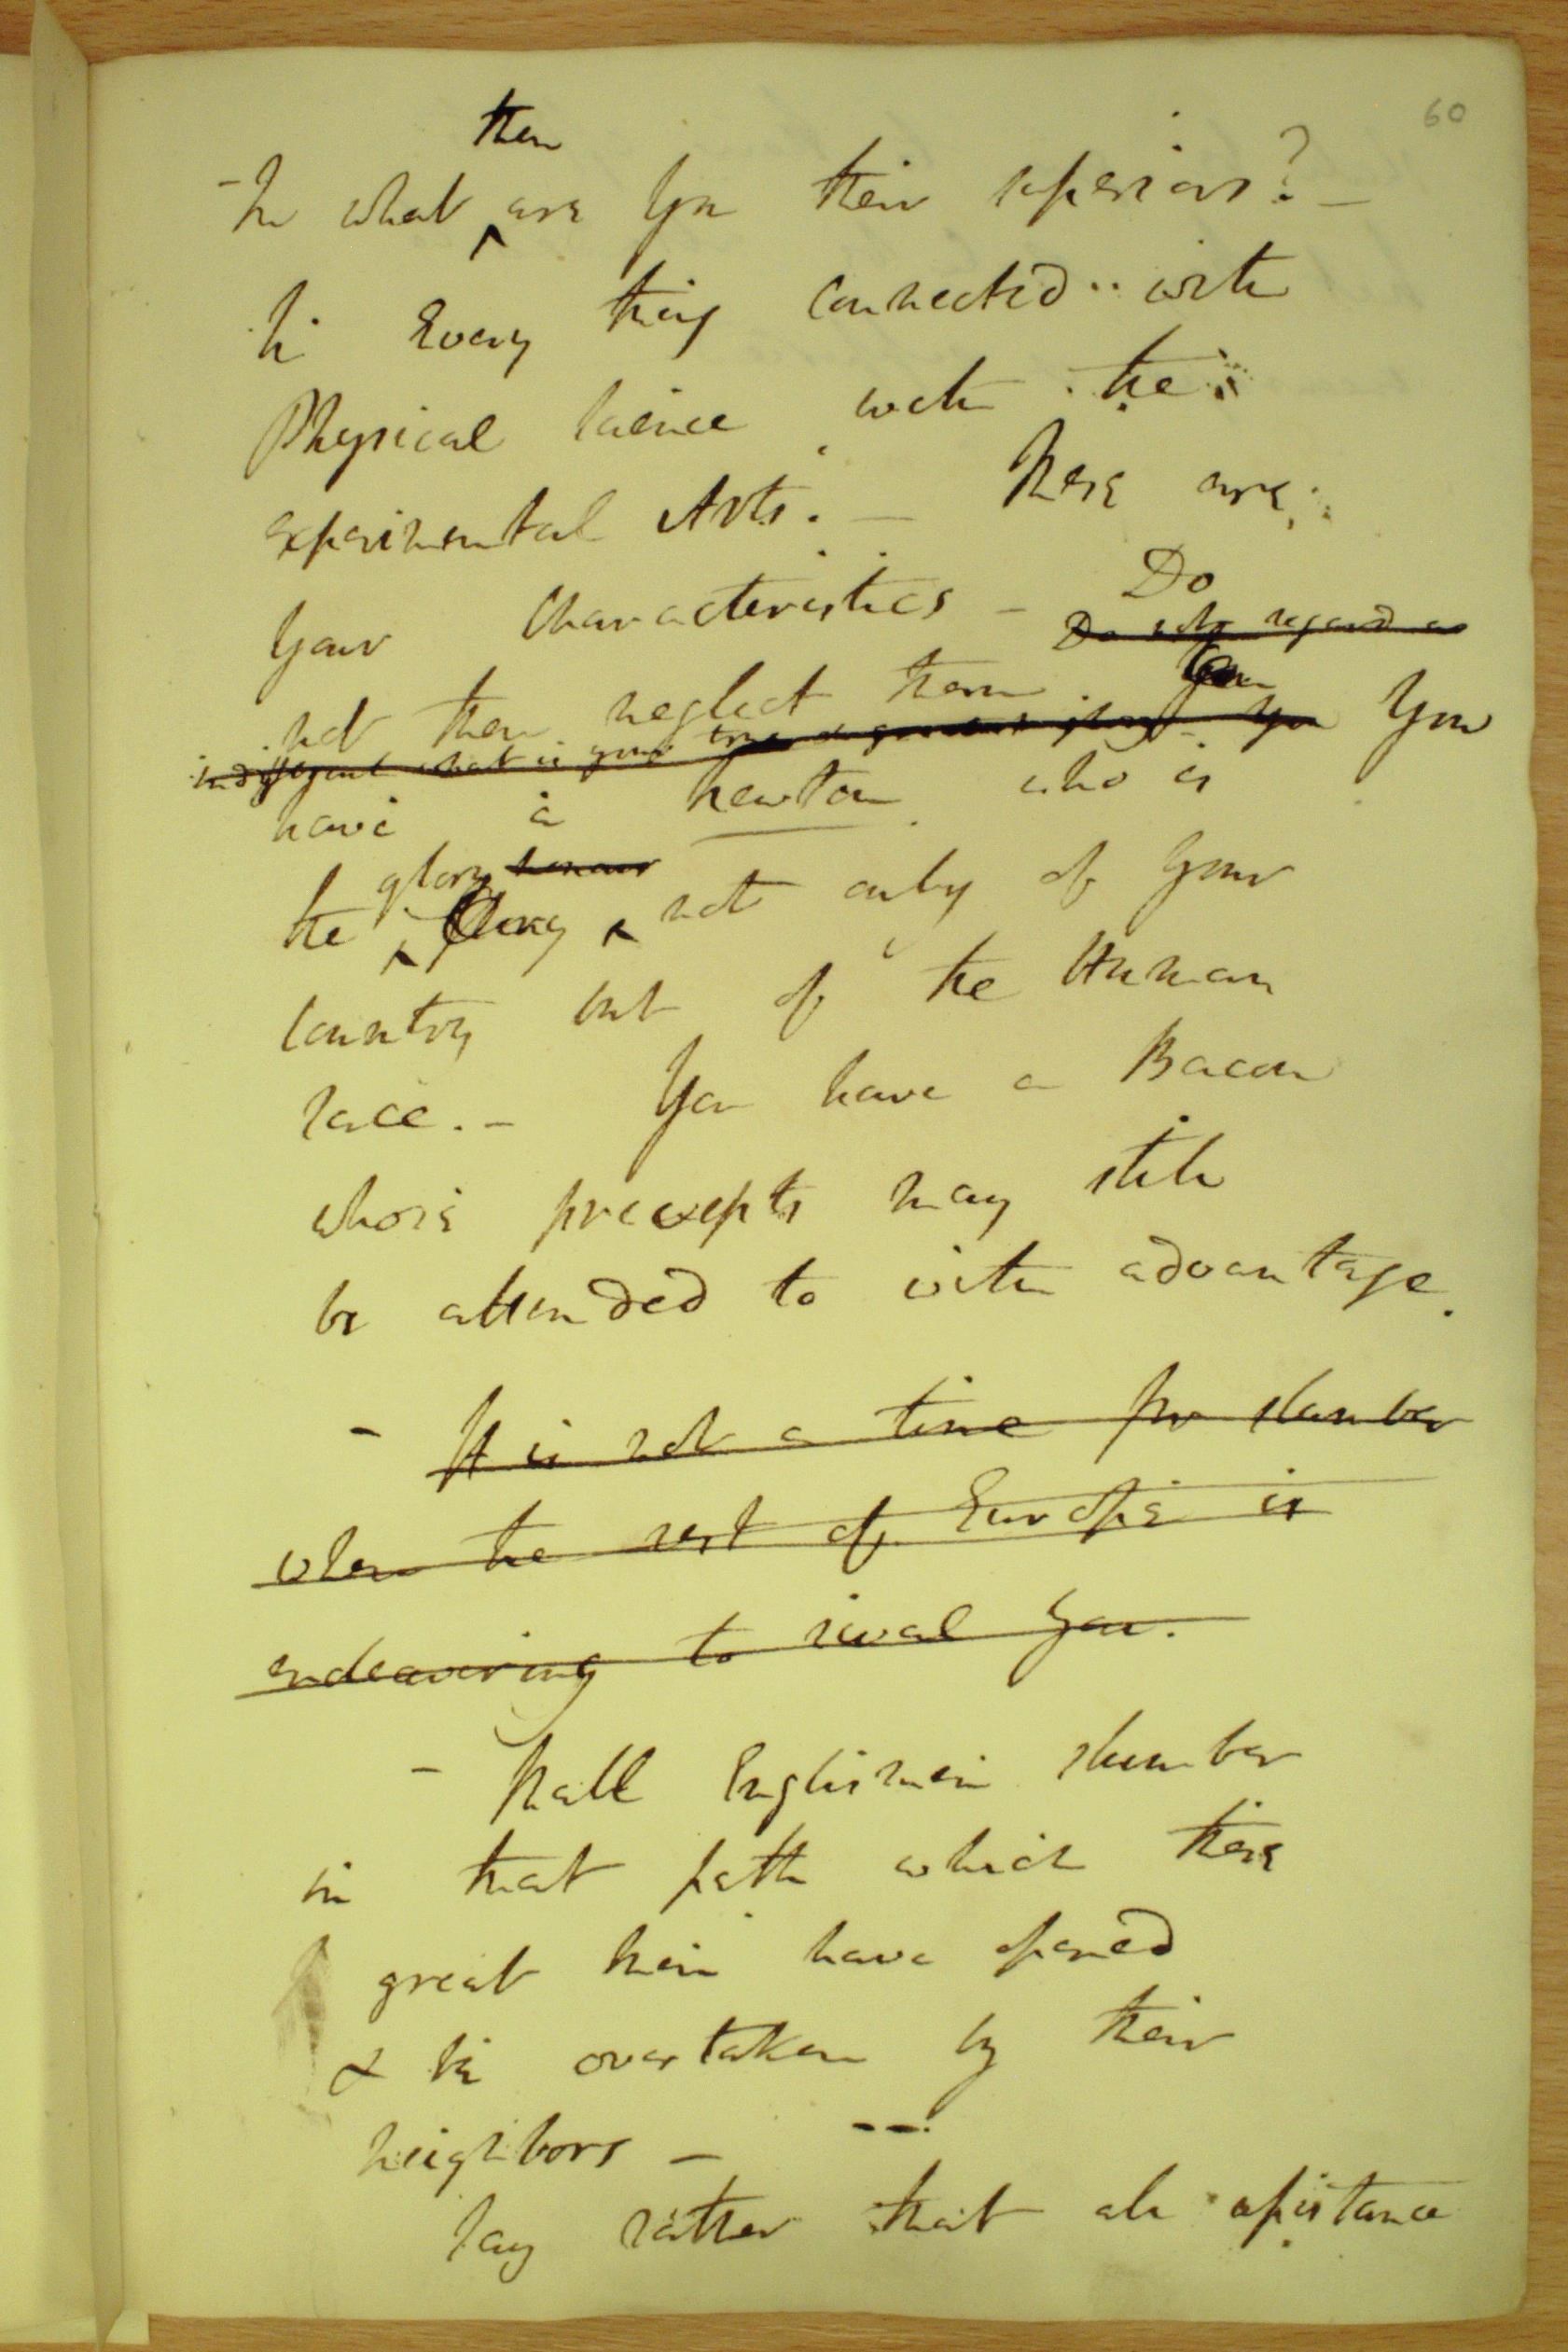 60
then
- In what are You their superiors? -
In Every thing connected with
Physical Science with the
experimental Arts. - These are
Your Characteristics - Do
Do not regard as
not then neglect them. You
indifferent what is your true glory - You
have a Newton who is
glory honour
the glory not only of Your
Country but of the Human
race. - You have a Bacon
whose precepts may still
be attended to with advantage.
- It is not a time for slumber
when the rest of Europe is
endeavoring to rival You.
- Shall Englishmen slumber
in that path which these
great Men have opened
& be overtaken by their
neighbors - --
Say rather that all assistance